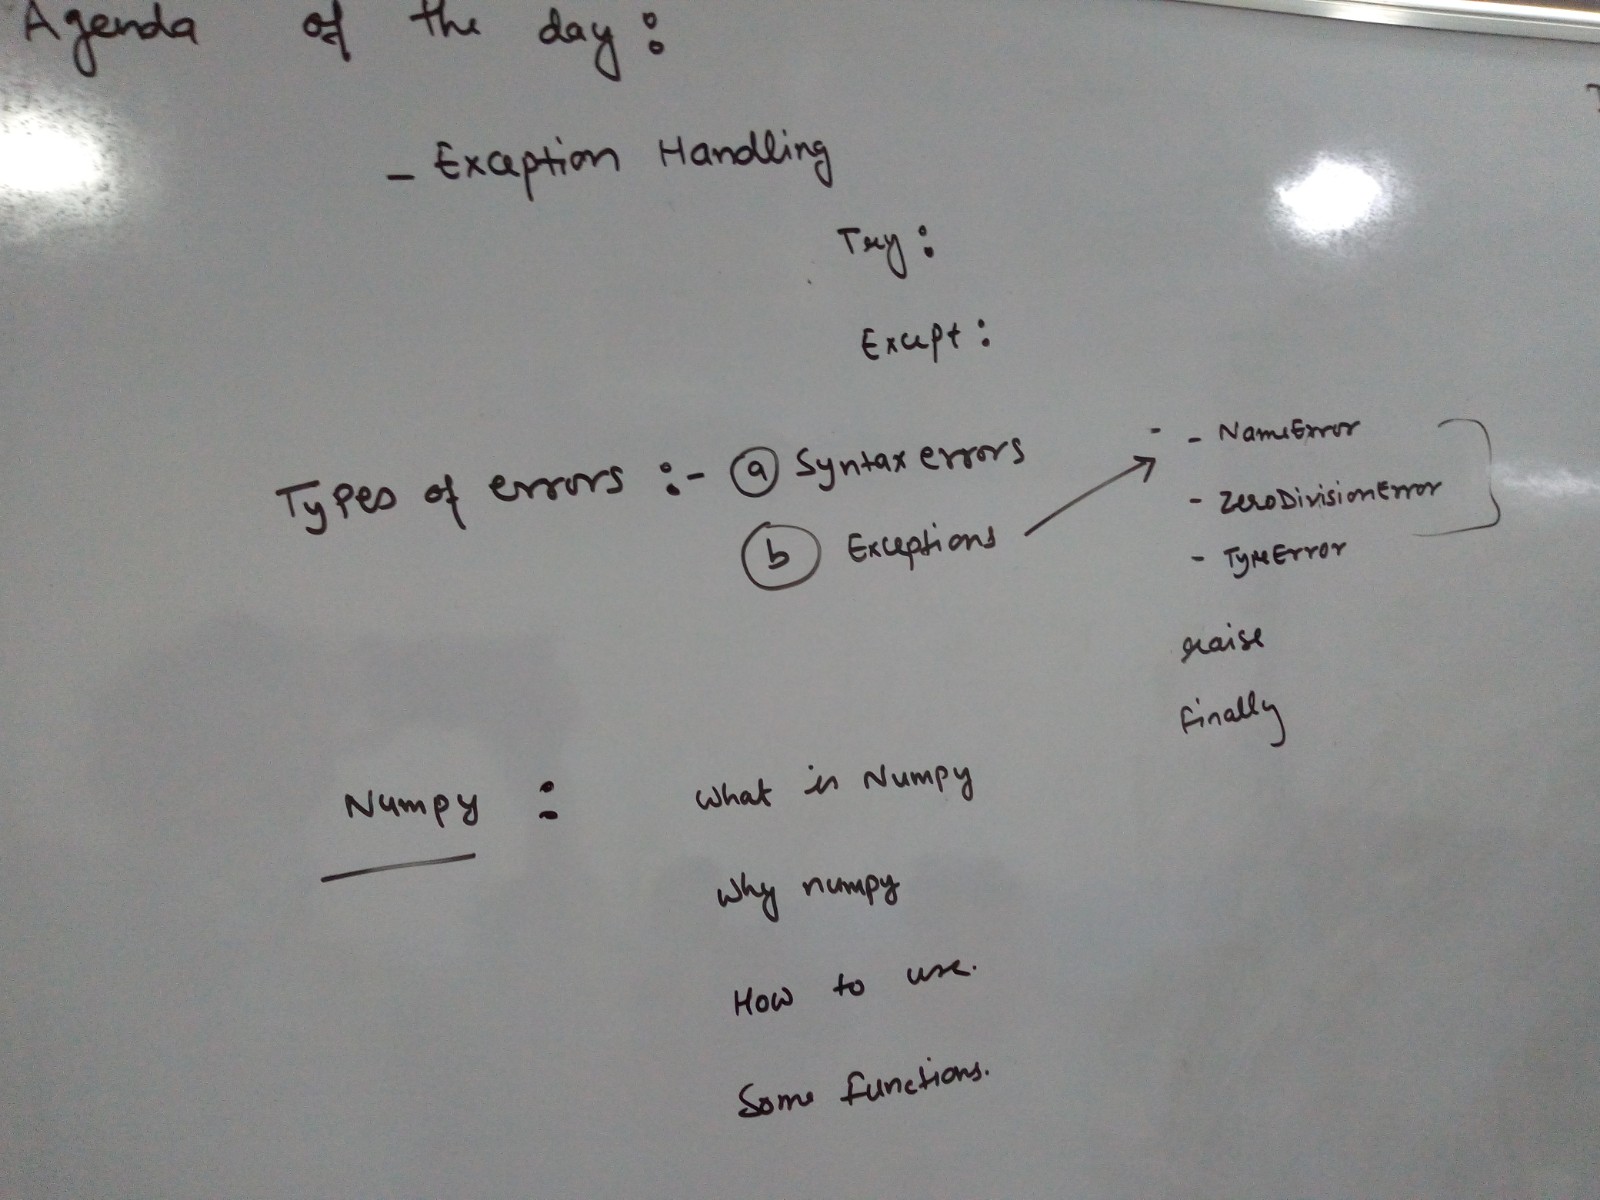 Agenda of the day:
- Exception Handling
Try:
Except:
Types of errors :- (a) Syntax errors
(b) Exceptions
- NameError
- ZeroDivisionError
- TypeError
raise
finally
Numpy :
What is Numpy
Why numpy
How to use.
Some functions.